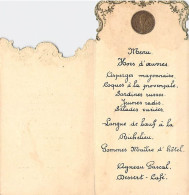 Menu
Hors d'œuvres
Asperges mayonnaise
Coques à la provençale
Sardines russes
Jeunes radis
Salades variées
Langue de bœuf à la
Richelieu
Pommes Maître d'hôtel
Agneau Pascal
Dessert - Café.